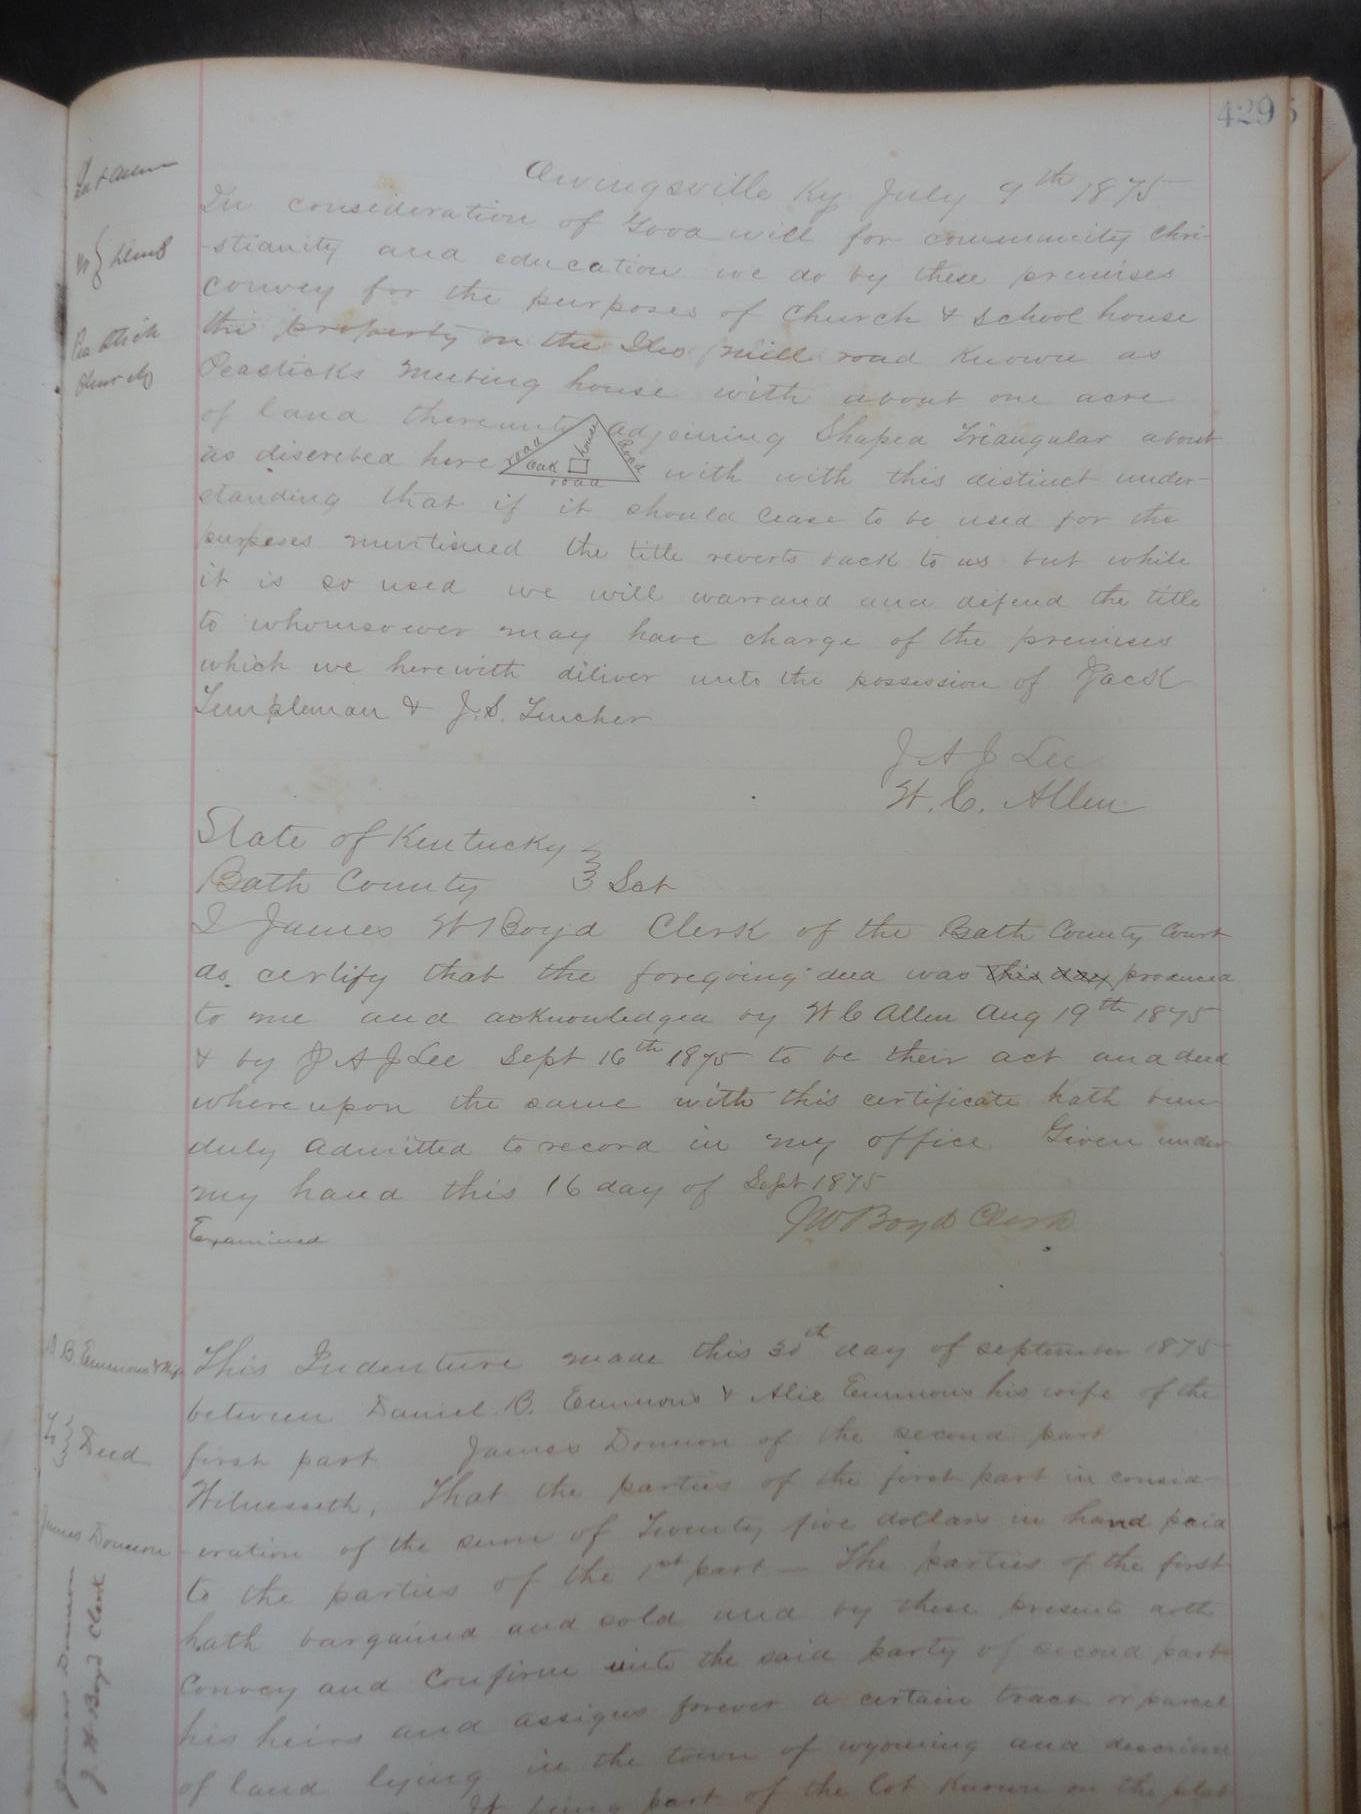 429
Owingsville Ky July 9th 1875
In consideration of Good will for community Chri-
-stianity and education we do by these premises
convey for the purposes of Church & School house
the property on the mill road known as
Peasticks meeting house with about one acre
of land thereunto adjoining Shaped Triangular about
as discribed here with with this distinct under-
road
house
Road
Oak
road
standing that if it should cease to be used for the
purposes mentioned the title reverts back to us but while
it is so used we will warrand and difend the title
to whomsoever may have charge of the premises
which we herewith diliver unto the possession of Jack
Templeman & J.S. Tincher
J A J Lee
W. C. Allen
State of Kentucky
Bath County } Sct
I James W Boyd Clerk of the Bath County Court
do certify that the foregoing deed was this day produced
to me and acknowledged by W C Allen Aug 19th 1875
& by J A J Lee Sept 16th 1875 to be their act and deed
whereupon the same with this certificate hath been
duly admitted to record in my office Given under
my hand this 16 day of Sept 1875
Examined
J W Boyd Clerk
B. Emmons & Wife
To } Deed
James Donnon
This Indenture made this 30th day of september 1875
between Daniel B. Emmons & Alie Emmons his wife of the
first part James Donnon of the second part
Witnesseth, That the parties of the first part in consid-
-eration of the sum of Twenty five dollars in hand paid
to the parties of the 1st part — The parties of the first
hath bargained and sold and by these presents doth
Convey and Confirm unto the said party of second part
his heirs and assigns forever a certain tract or parcel
of land lying in the town of wyoming and described
It being part of the lot Known on the plat
James Donnon
J. W Boyd Clerk